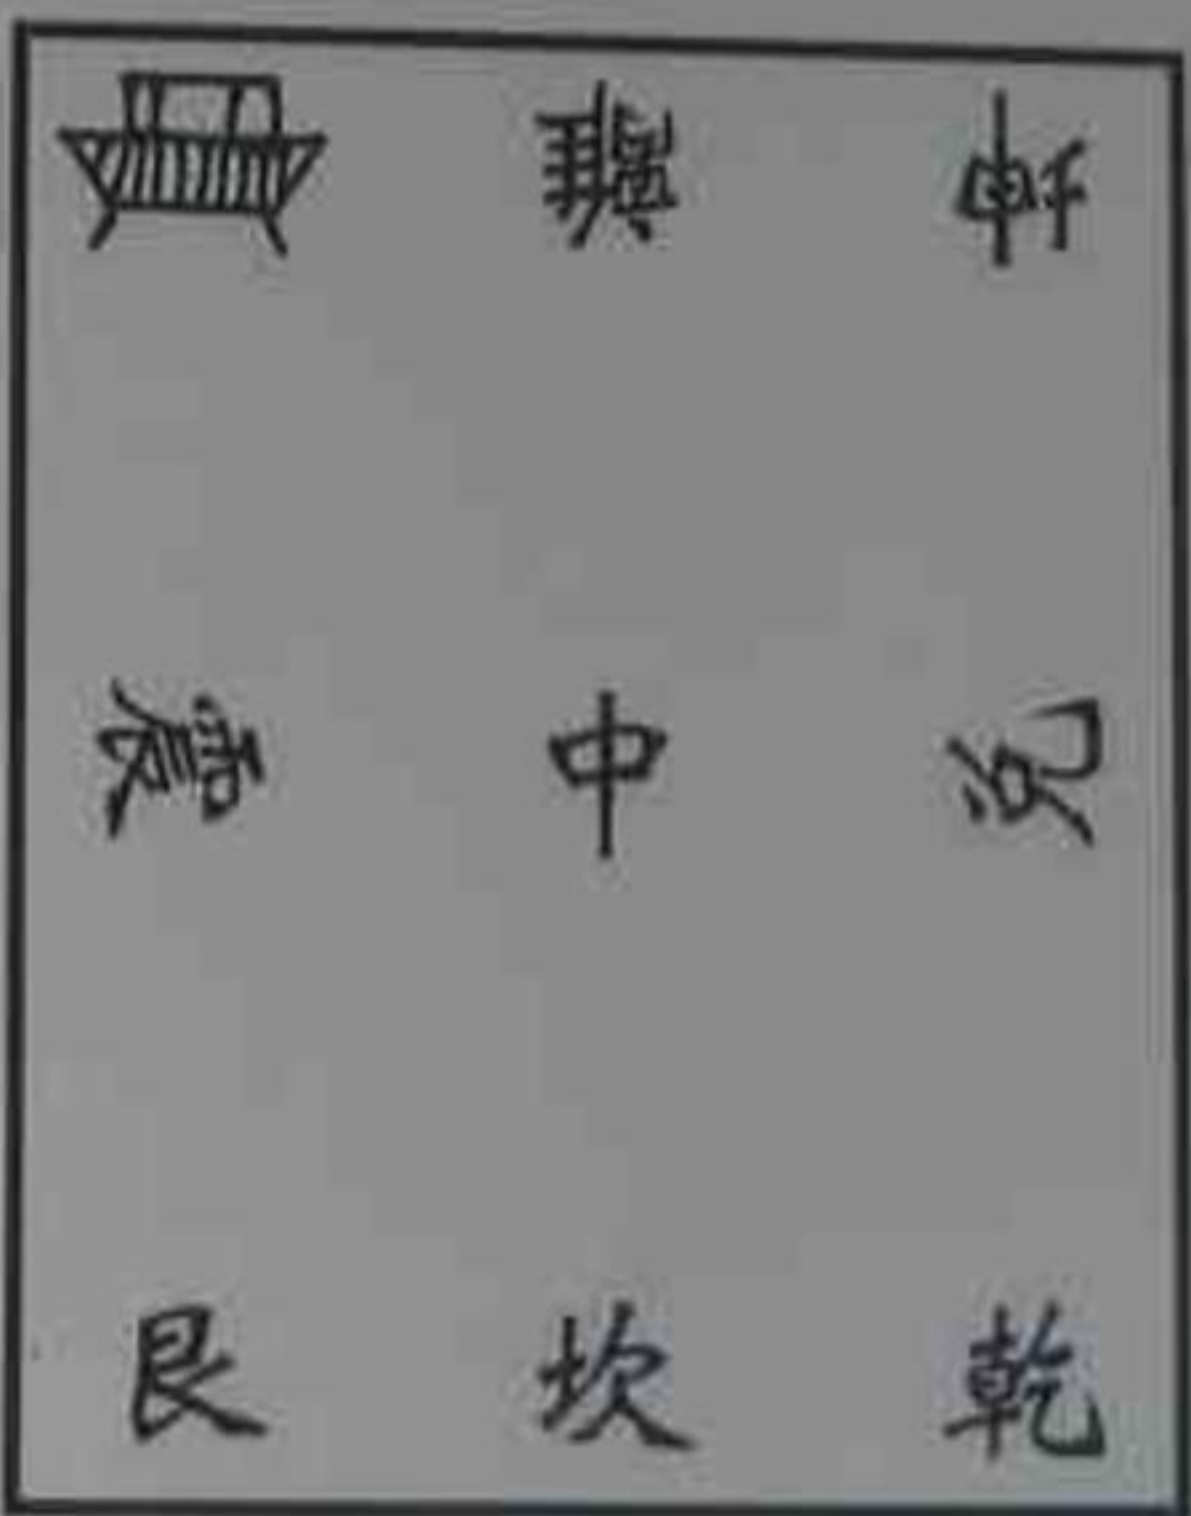 離 坤
震 中 兌
艮 坎 乾